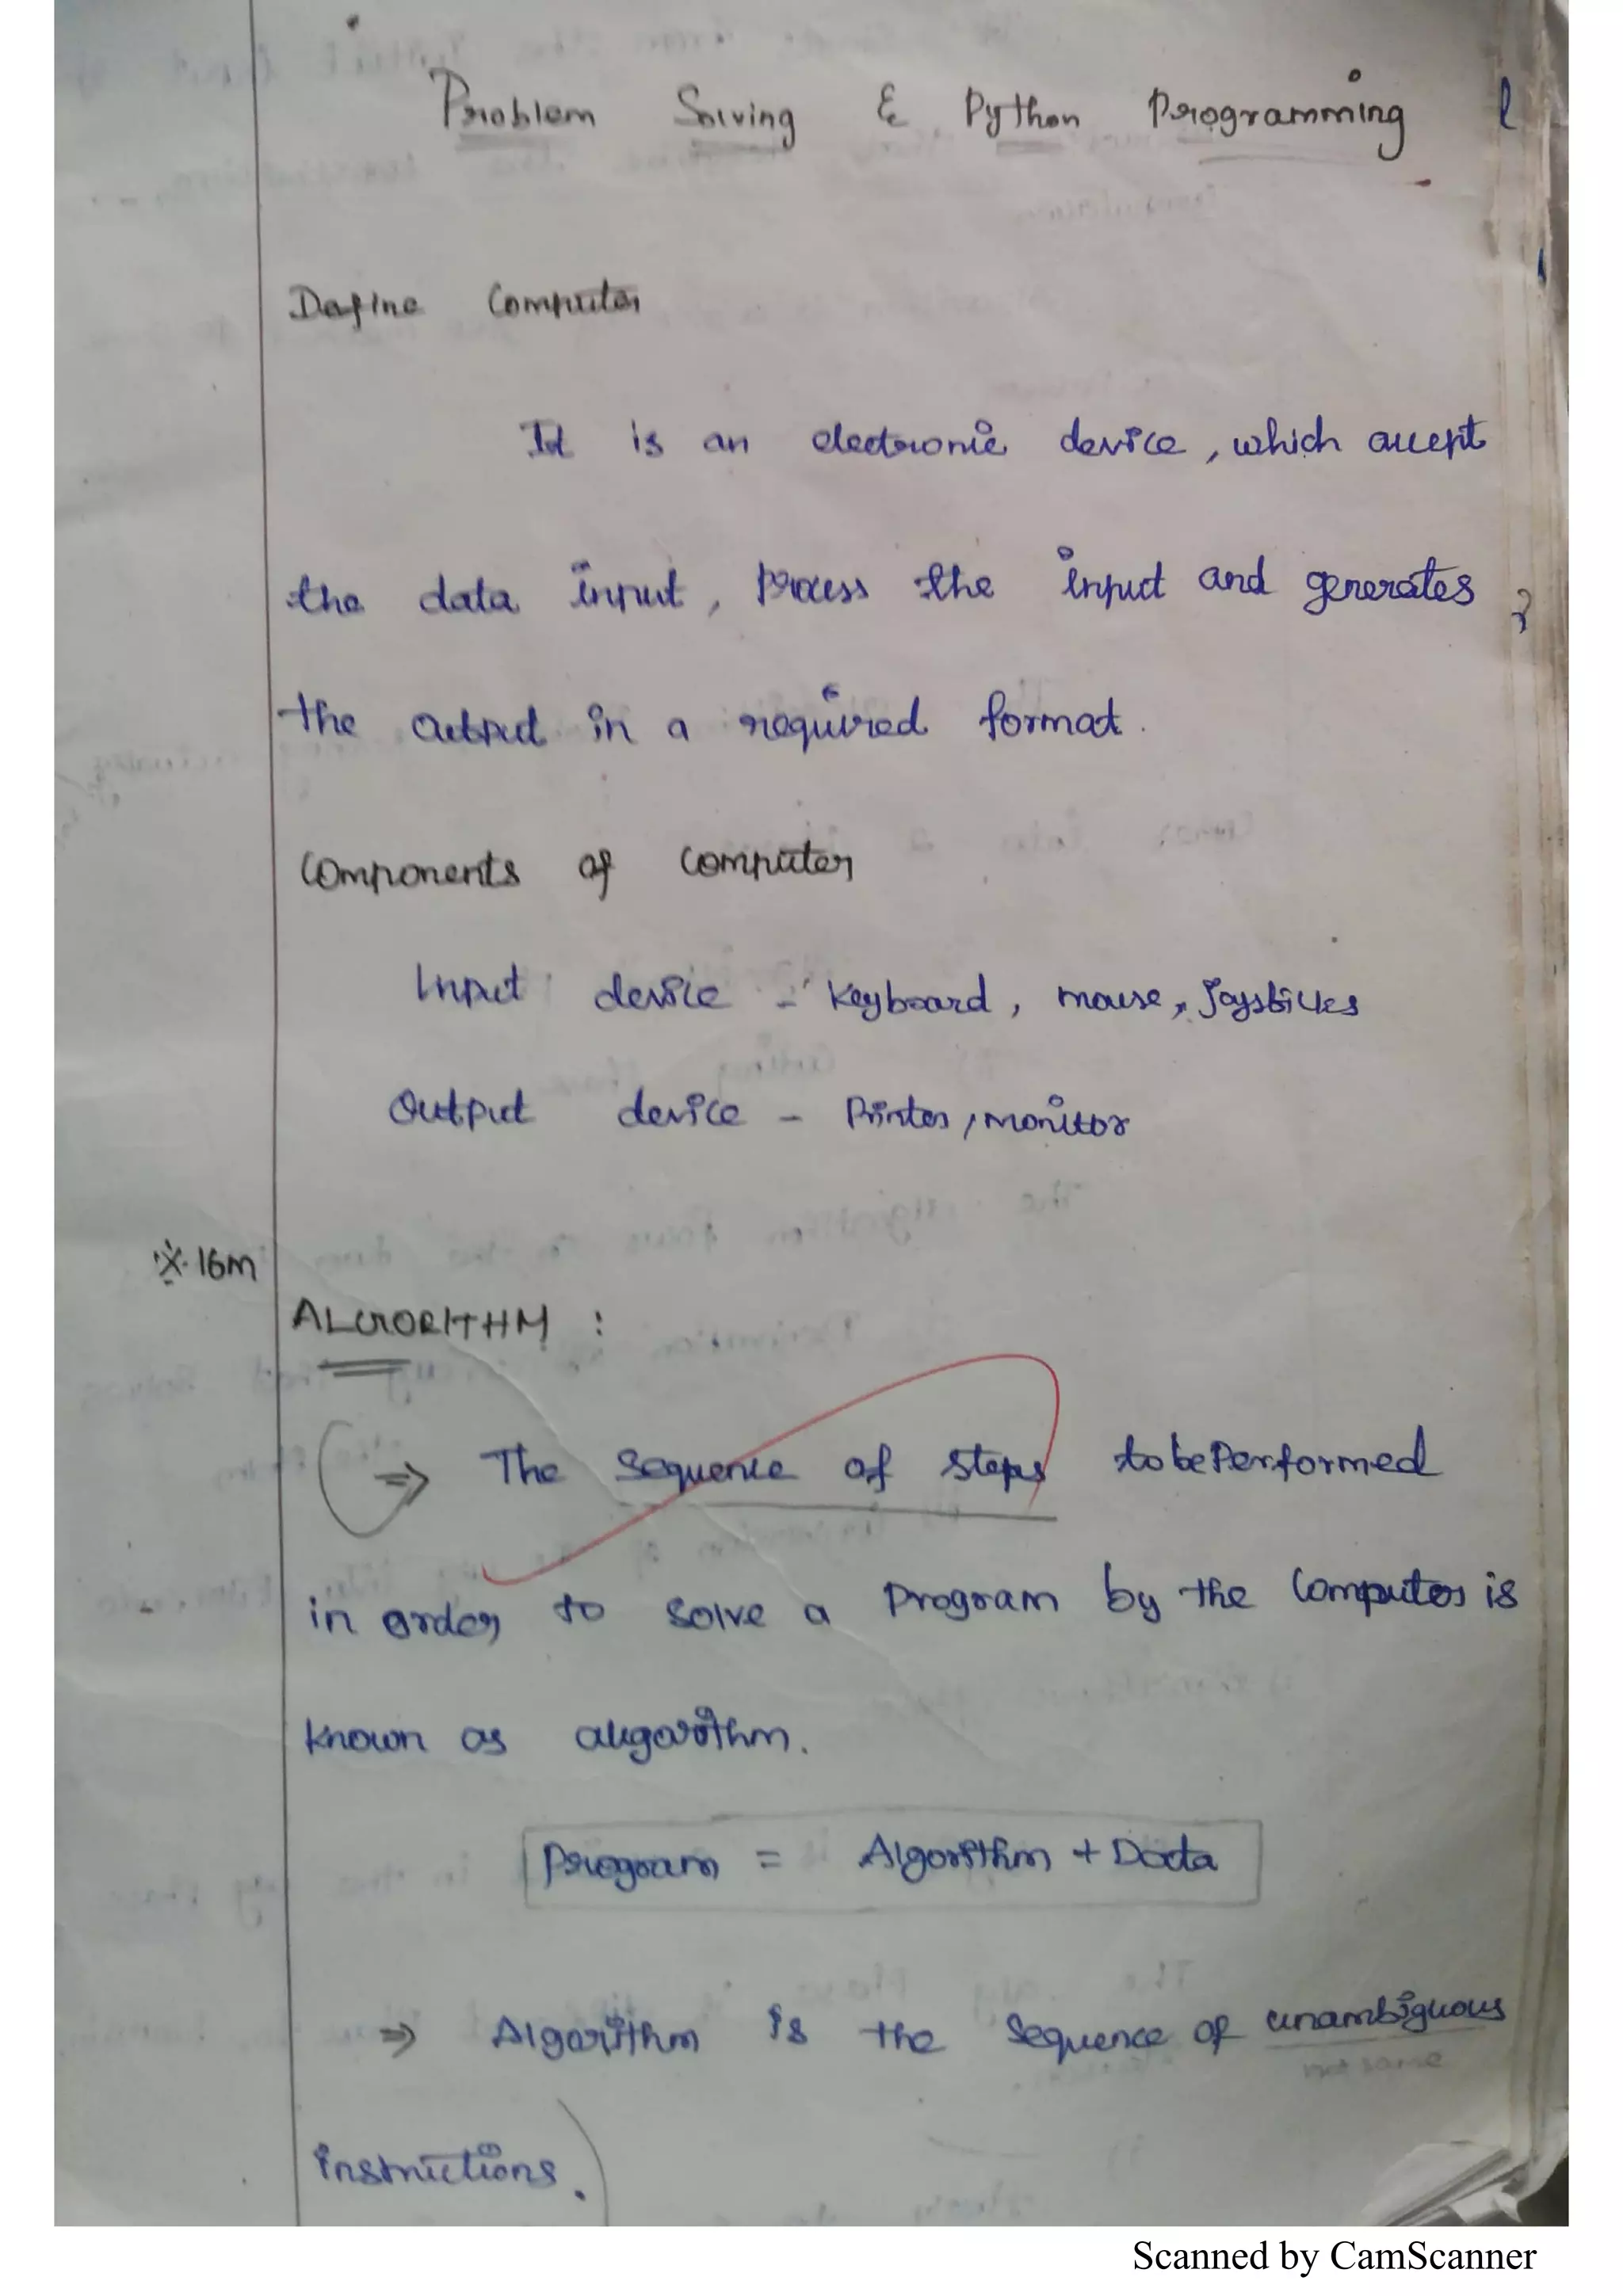 Problem Solving & Python Programming
Define Computer
It is an electronic device, which accept
the data input, process the input and generates
the output in a required format.
Components of computer
Input device - Keyboard, mouse, Joysticks
Output device - Printer, monitor
※ 16m
ALGORITHM :
⇒ The sequence of steps to be Performed
in order to solve a Program by the Computer is
known as algorithm.
Program = Algorithm + Data
⇒ Algorithm is the sequence of unambiguous
not same
instructions.
Scanned by CamScanner